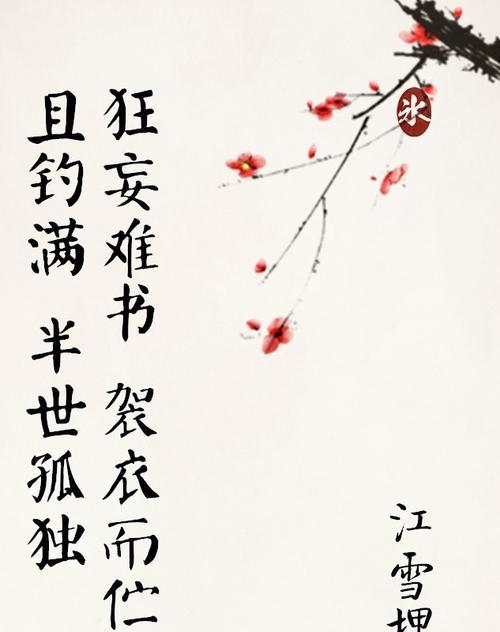 氷
江雪埋
狂妄难书 袈衣而伫
且钓满 半世孤独